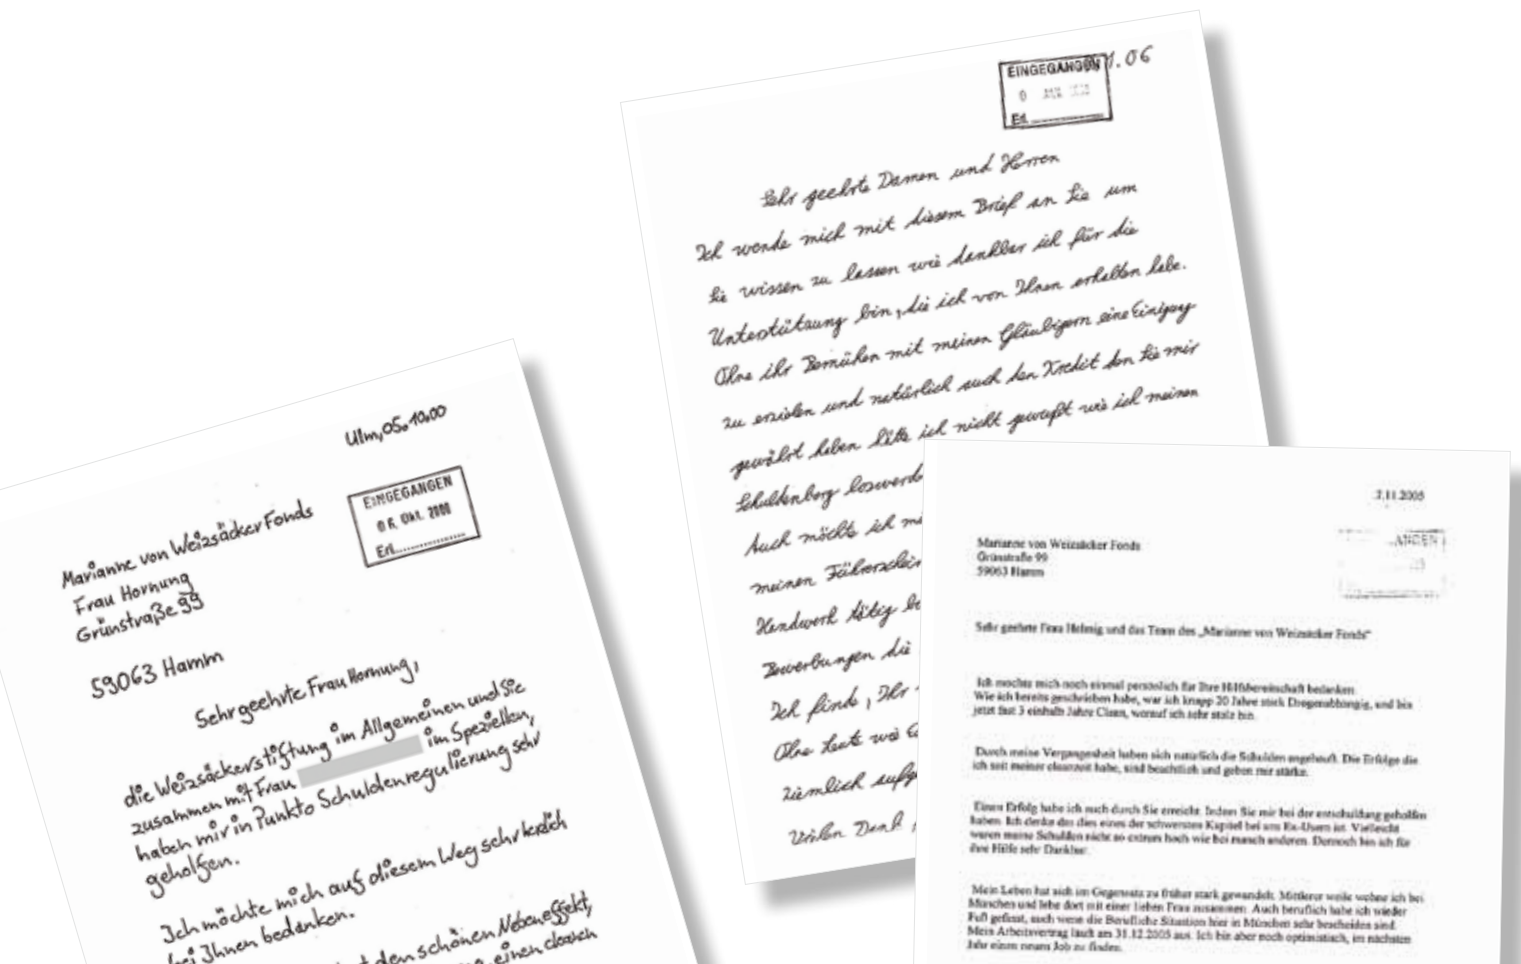 Ulm, 05.10.00
EINGEGANGEN
06. Okt. 2000
Erl.
Marianne von Weizsäcker Fonds
Frau Hornung
Grünstraße 99
59063 Hamm
Sehr geehrte Frau Hornung,
die Weizsäckerstiftung im Allgemeinen und Sie
zusammen mit Frau im Speziellen,
haben mir in Punkto Schuldenregulierung sehr
geholfen.
Ich möchte mich auf diesem Weg sehr herzlich
bei Ihnen bedanken.
den schönen Nebeneffekt,
einen
EINGEGANGEN
1.06
Erl.
Sehr geehrte Damen und Herren
Ich wende mich mit diesem Brief an Sie um
Sie wissen zu lassen wie dankbar ich für die
Unterstützung bin, die ich von Ihnen erhalten habe.
Ohne ihr Bemühen mit meinen Gläubigern eine Einigung
zu erzielen und natürlich auch den Kredit den Sie mir
gewährt haben hätte ich nicht gewußt wie ich meinen
Schuldenberg loswerd
Auch möchte ich
meinen Führerschein
Handwerk tätig
Bewerbungen die
Ich finde, Ihr
Ohne Leute wie
ziemlich
Vielen Dank
2.11.2005
Marianne von Weizsäcker Fonds
Grünstraße 99
59063 Hamm
ANGEN
Sehr geehrte Frau Helmig und das Team des „Marianne von Weizsäcker Fonds“
Ich mochte mich noch einmal persönlich für Ihre Hilfsbereitschaft bedanken.
Wie ich bereits geschrieben habe, war ich knapp 20 Jahre stark Drogenabhängig, und bin
jetzt fast 3 einhalb Jahre Clean, worauf ich sehr stolz bin.
Durch meine Vergangenheit haben sich natürlich die Schulden angehäuft. Die Erfolge die
ich seit meiner cleanzeit habe, sind beachtlich und geben mir stärke.
Einen Erfolg habe ich auch durch Sie erreicht. Indem Sie mir bei der entschuldung geholfen
haben. Ich denke das dies eines der schwersten Kapitel bei uns Ex-Usern ist. Vielleicht
waren meine Schulden nicht so extrem hoch wie bei manch anderen. Dennoch bin ich für
ihre Hilfe sehr Dankbar.
Mein Leben hat sich im Gegensatz zu früher stark gewandelt. Mittlerer weile wohne ich bei
München und lebe dort mit einer lieben Frau zusammen. Auch beruflich habe ich wieder
Fuß gefasst, auch wenn die Berufliche Situation hier in München sehr bescheiden sind.
Mein Arbeitsvertrag läuft am 31.12.2005 aus. Ich bin aber noch optimistisch, im nächsten
Jahr einen neuen Job zu finden.